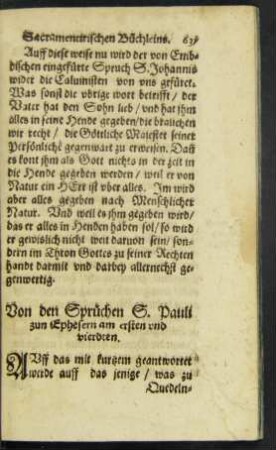 Sacramentirischen Büchleins. 63
Auff diese weise nu wird der von Emb-
dischen eingefürte Spruch S. Johannis
wider die Caluinisten von vns gefüret.
Was sonst die vbrigen wort betrifft / der
Vater hat den Sohn lieb / vnd hat jhm
alles in seine Hende gegeben / die brauchen
wir recht / die Göttliche Maiestet seiner
Persönlichē gegenwart zu erweisen. Dañ
es kont jhm als Gott nichts in der zeit in
die Hende gegeben werden / weil er von
Natur ein HErr ist vber alles. Im wird
aber alles gegeben nach Menschlicher
Natur. Vnd weil es jhm gegeben wird /
das er alles in Henden haben sol / so wird
er gewislich nicht weit daruon sein / son-
dern im Thron Gottes zu seiner Rechten
handt darmit vnd darbey allernechst ge-
genwertig.
Von den Sprüchen S. Pauli
zun Ephesern am ersten vnd
vierdten.
AVff das mit kurtzem geantwortet
werde auff das jenige / was zu
Quedeln-